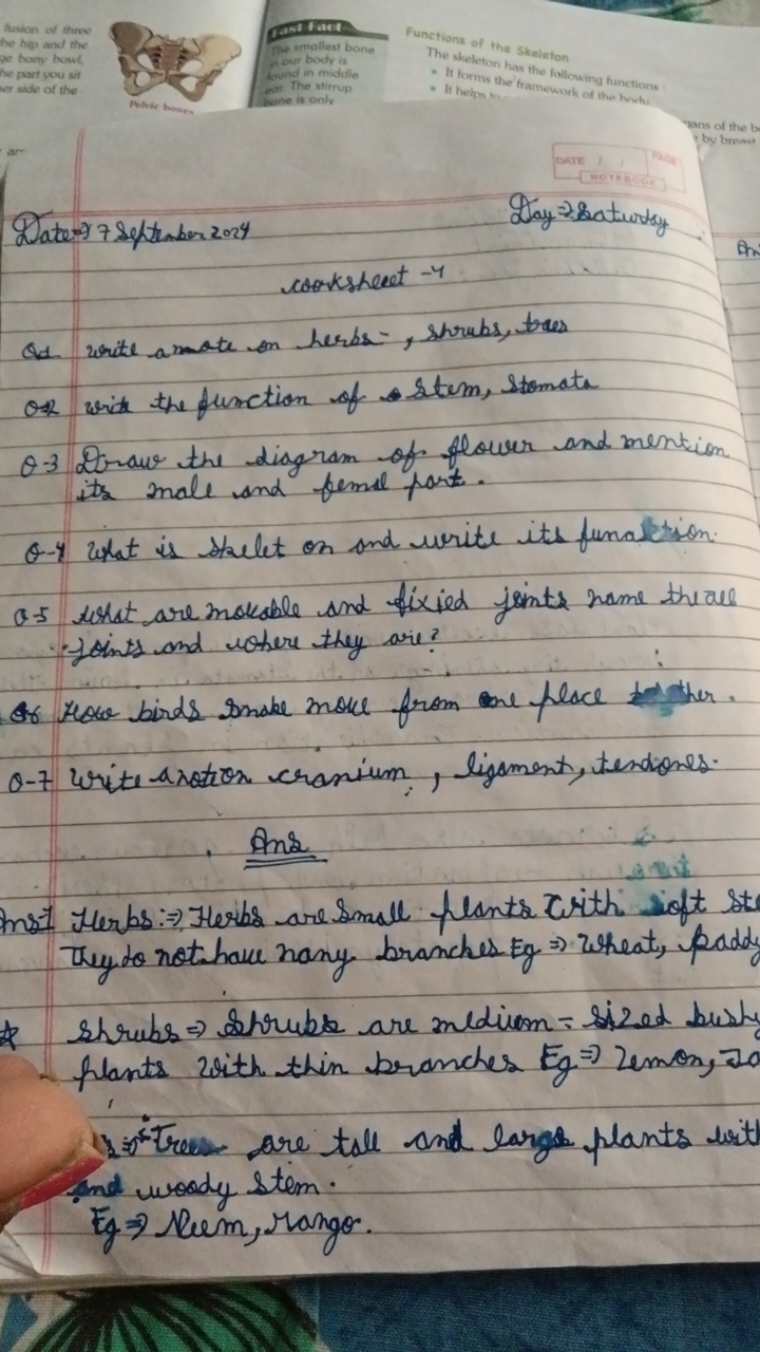 fusion of three
he hip and the
ge bony bowl,
he part you sit
er side of the
Pelvic bones
Fast Fact
The smallest bone
in our body is
found in middle
ear. The stirrup
bone is only
Functions of the Skeleton
The skeleton has the following functions :
• It forms the framework of the body
• It helps
gans of the b
by breast
DATE / / PAGE
NOTEBOOK
Date⇒ 7 September 2024
Day⇒Saturday
worksheet -4
Q1 write a note on herbs-, shrubs, trees
Q2 write the function of stem, Stomata
Q-3 Draw the diagram of flower and mention
its male and femal part.
Q-4 What is skelet on and write its funaction.
Q-5 what are movable and fixied joints name the all
joints and where they are?
Q6 How birds snake move from one place
Q-7 Write a not on cranium, ligament, tendones.
Ans
Ans1 Herbs:⇒ Herbs are small plants with soft ste
They do not have many branches Eg ⇒ Wheat, paddy
☆ Shrubs⇒ Shrubs are medium-sized bushy
plants with thin branches Eg⇒ Lemon,
Trees are tall and large plants with
and woody stem.
Eg⇒ Neem, Mango.